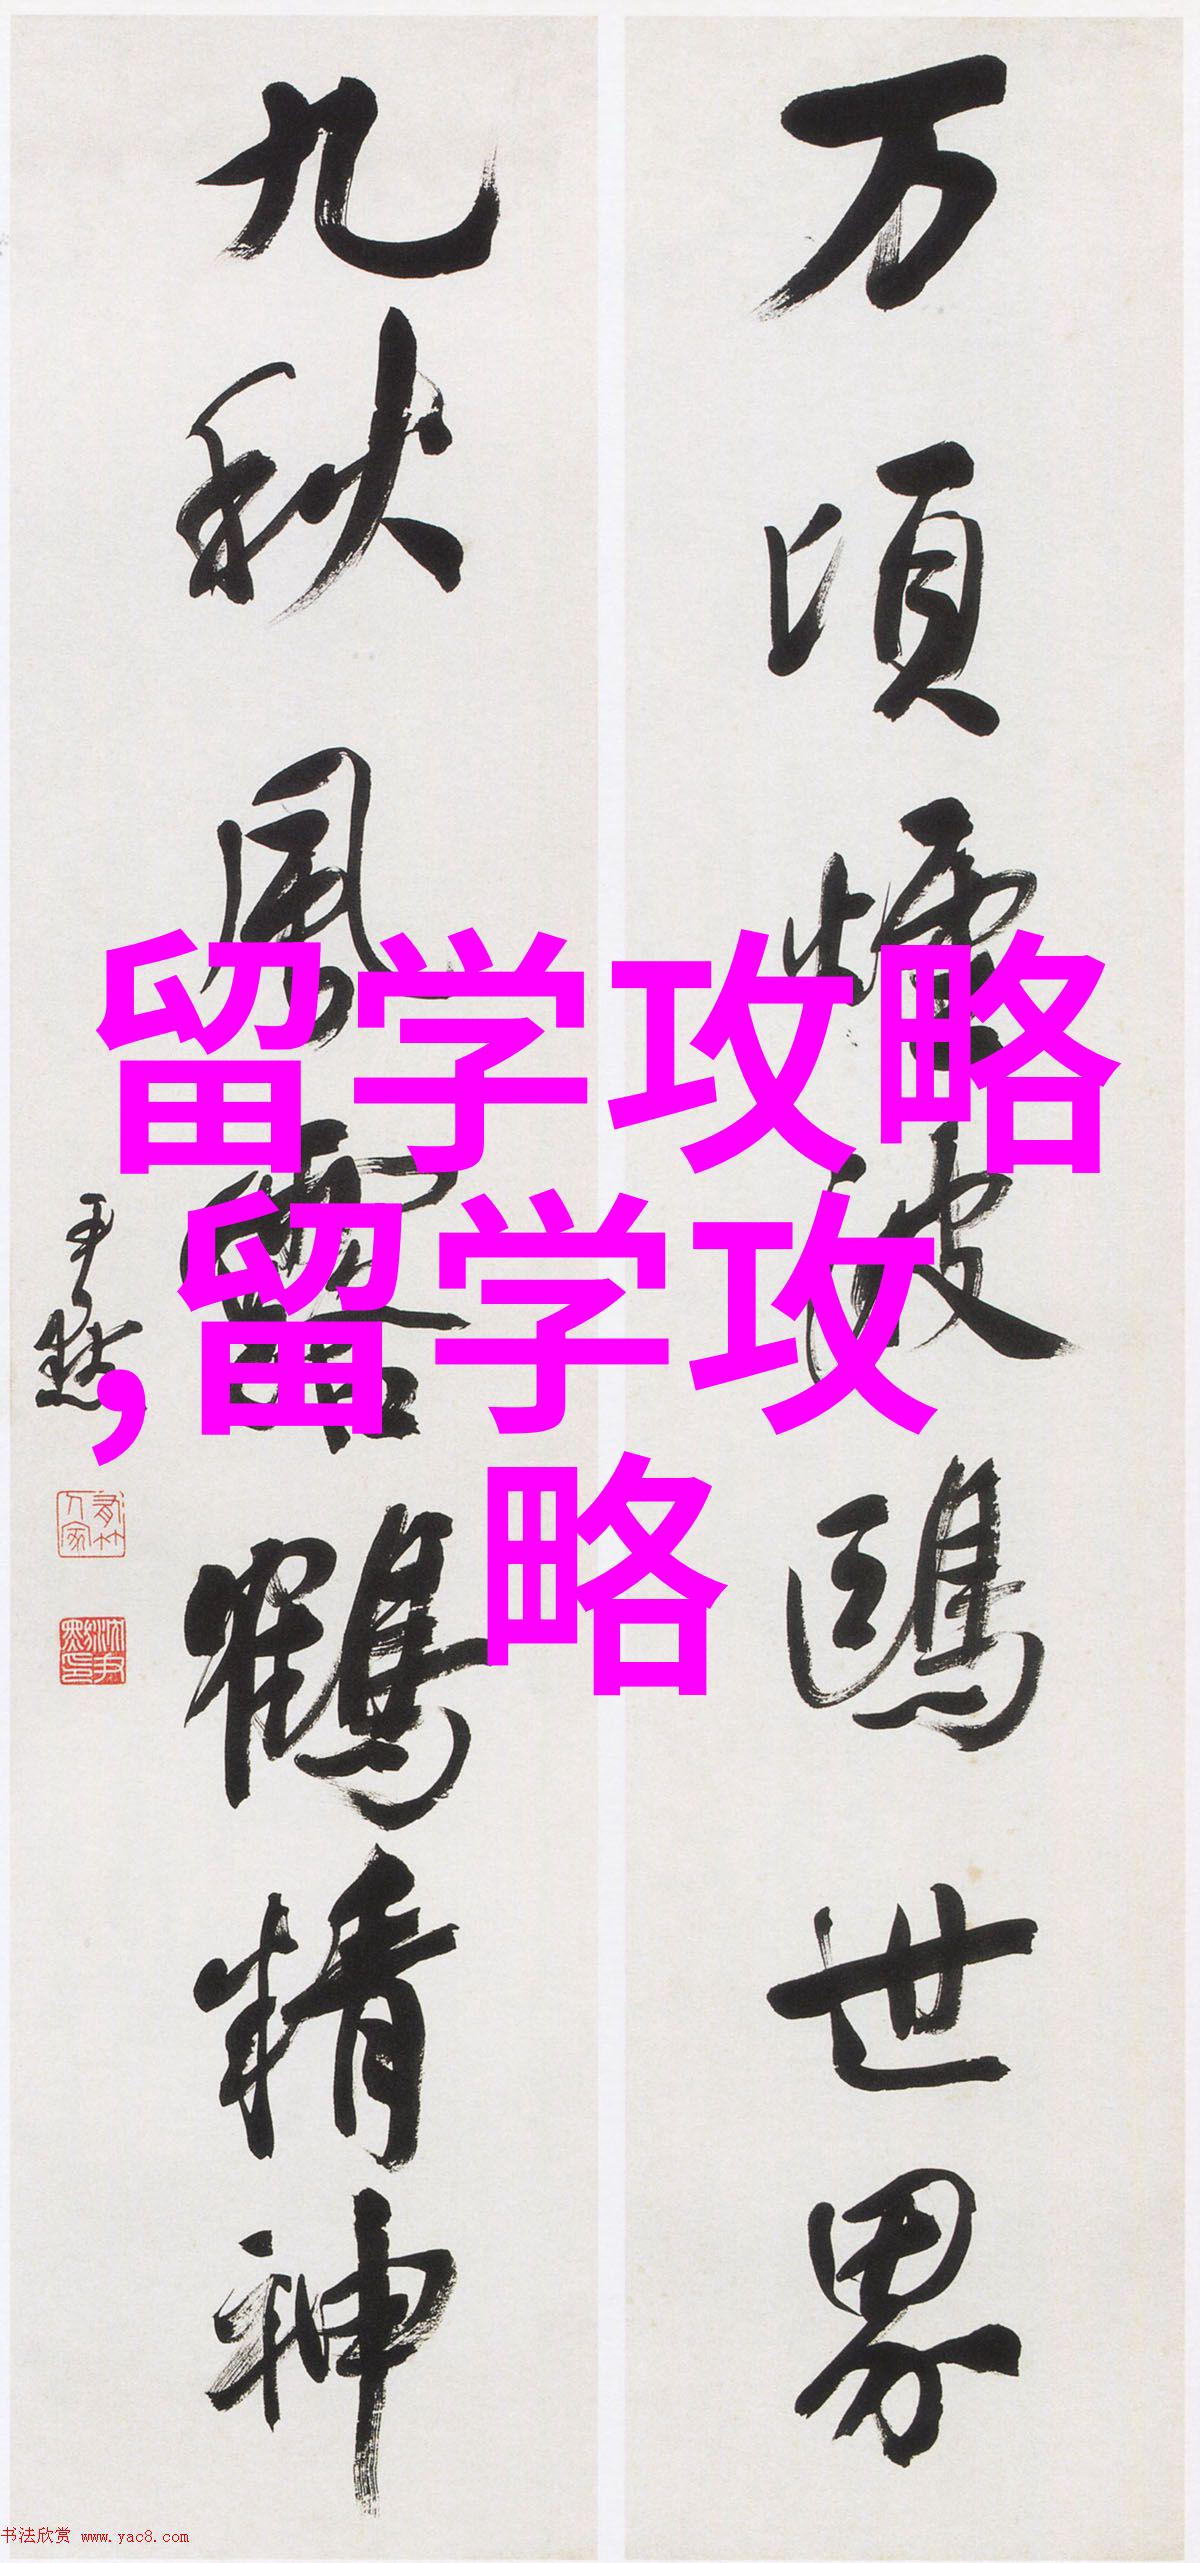 万頃煙波鷗世界
九秋風露鶴精神
尹默
沈尹默印
留学攻略
,留学攻
略
书法欣赏 www.yac8.com